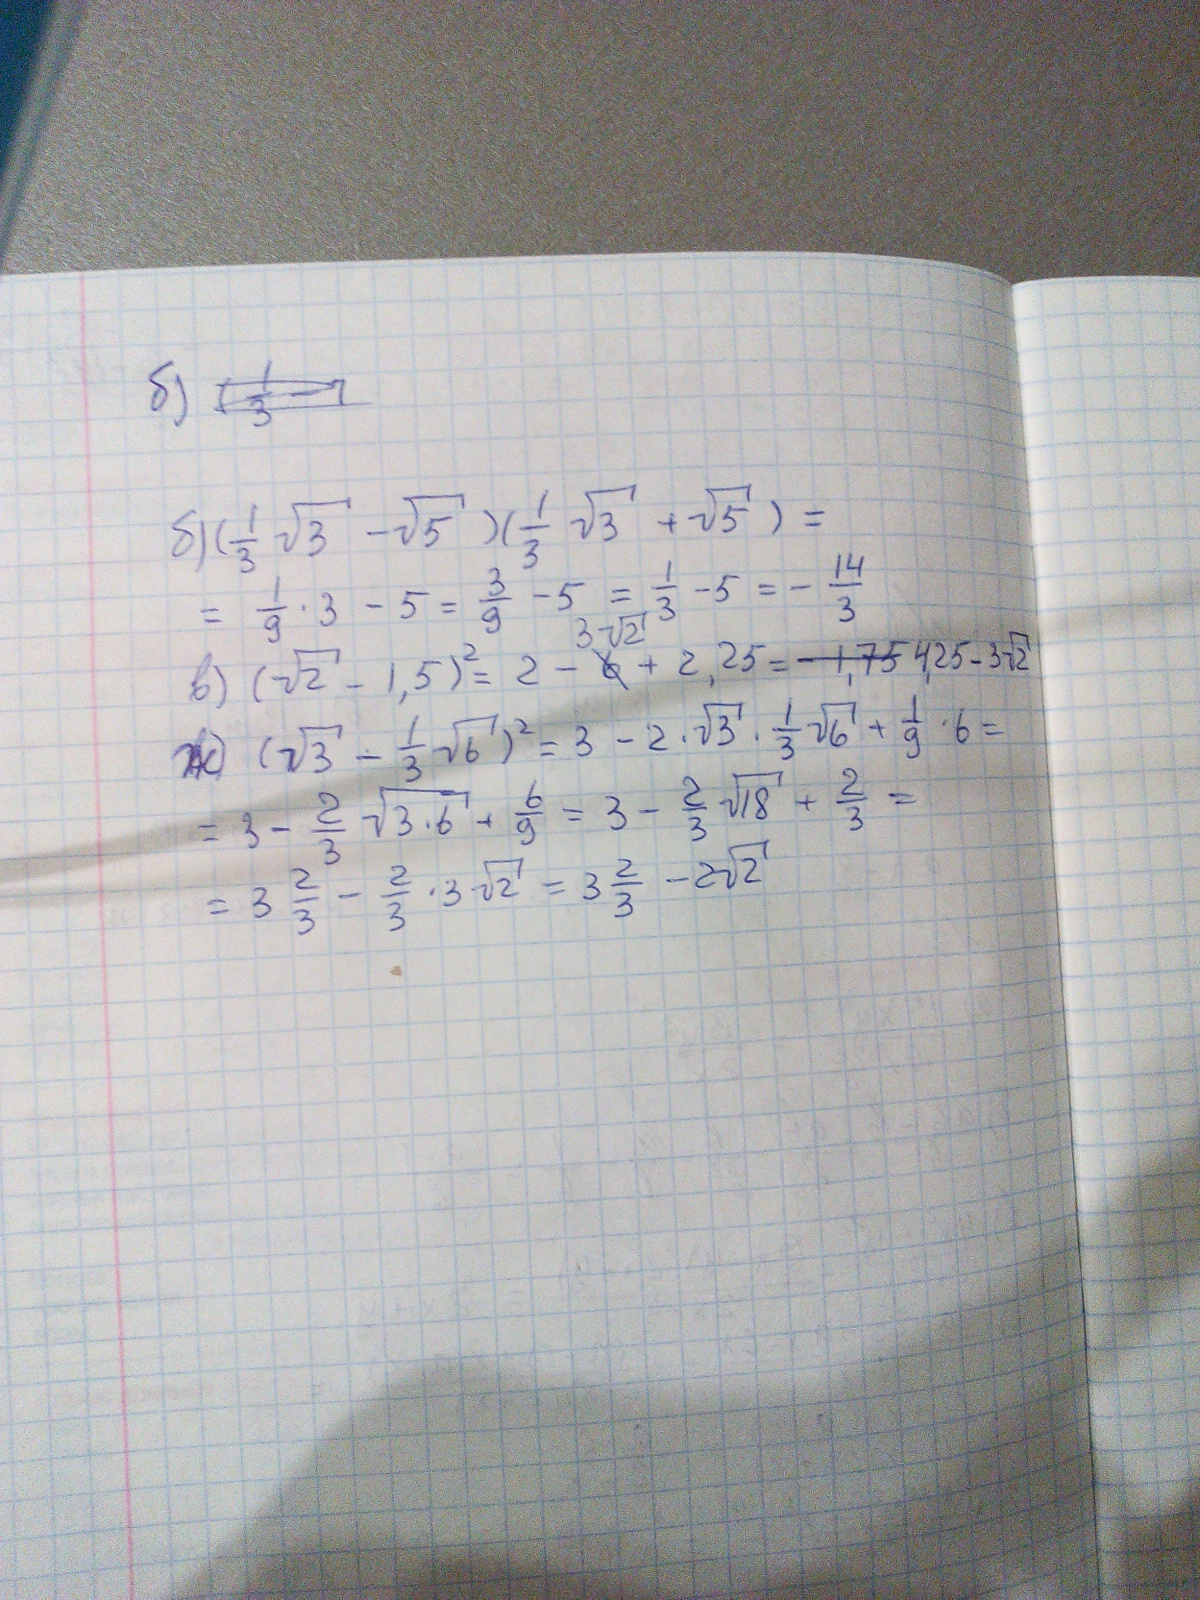 б) 1/3 -
б) (1/3 √3 - √5)(1/3 √3 + √5) =
= 1/9 · 3 - 5 = 3/9 - 5 = 1/3 - 5 = - 14/3
в) (√2 - 1,5)² = 2 - 6 3√2 + 2,25 = - 1,75 4,25 - 3√2
ж) (√3 - 1/3 √6)² = 3 - 2 · √3 · 1/3 √6 + 1/9 · 6 =
= 3 - 2/3 √3·6 + 6/9 = 3 - 2/3 √18 + 2/3 =
= 3 2/3 - 2/3 · 3√2 = 3 2/3 - 2√2